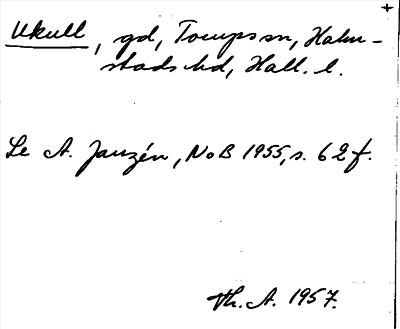 Ukull, gd, Torups sn, Halm-
stads hd, Hall. l.
Se A. Janzén, NoB 1955, s. 62 f.
Th. A. 1957.